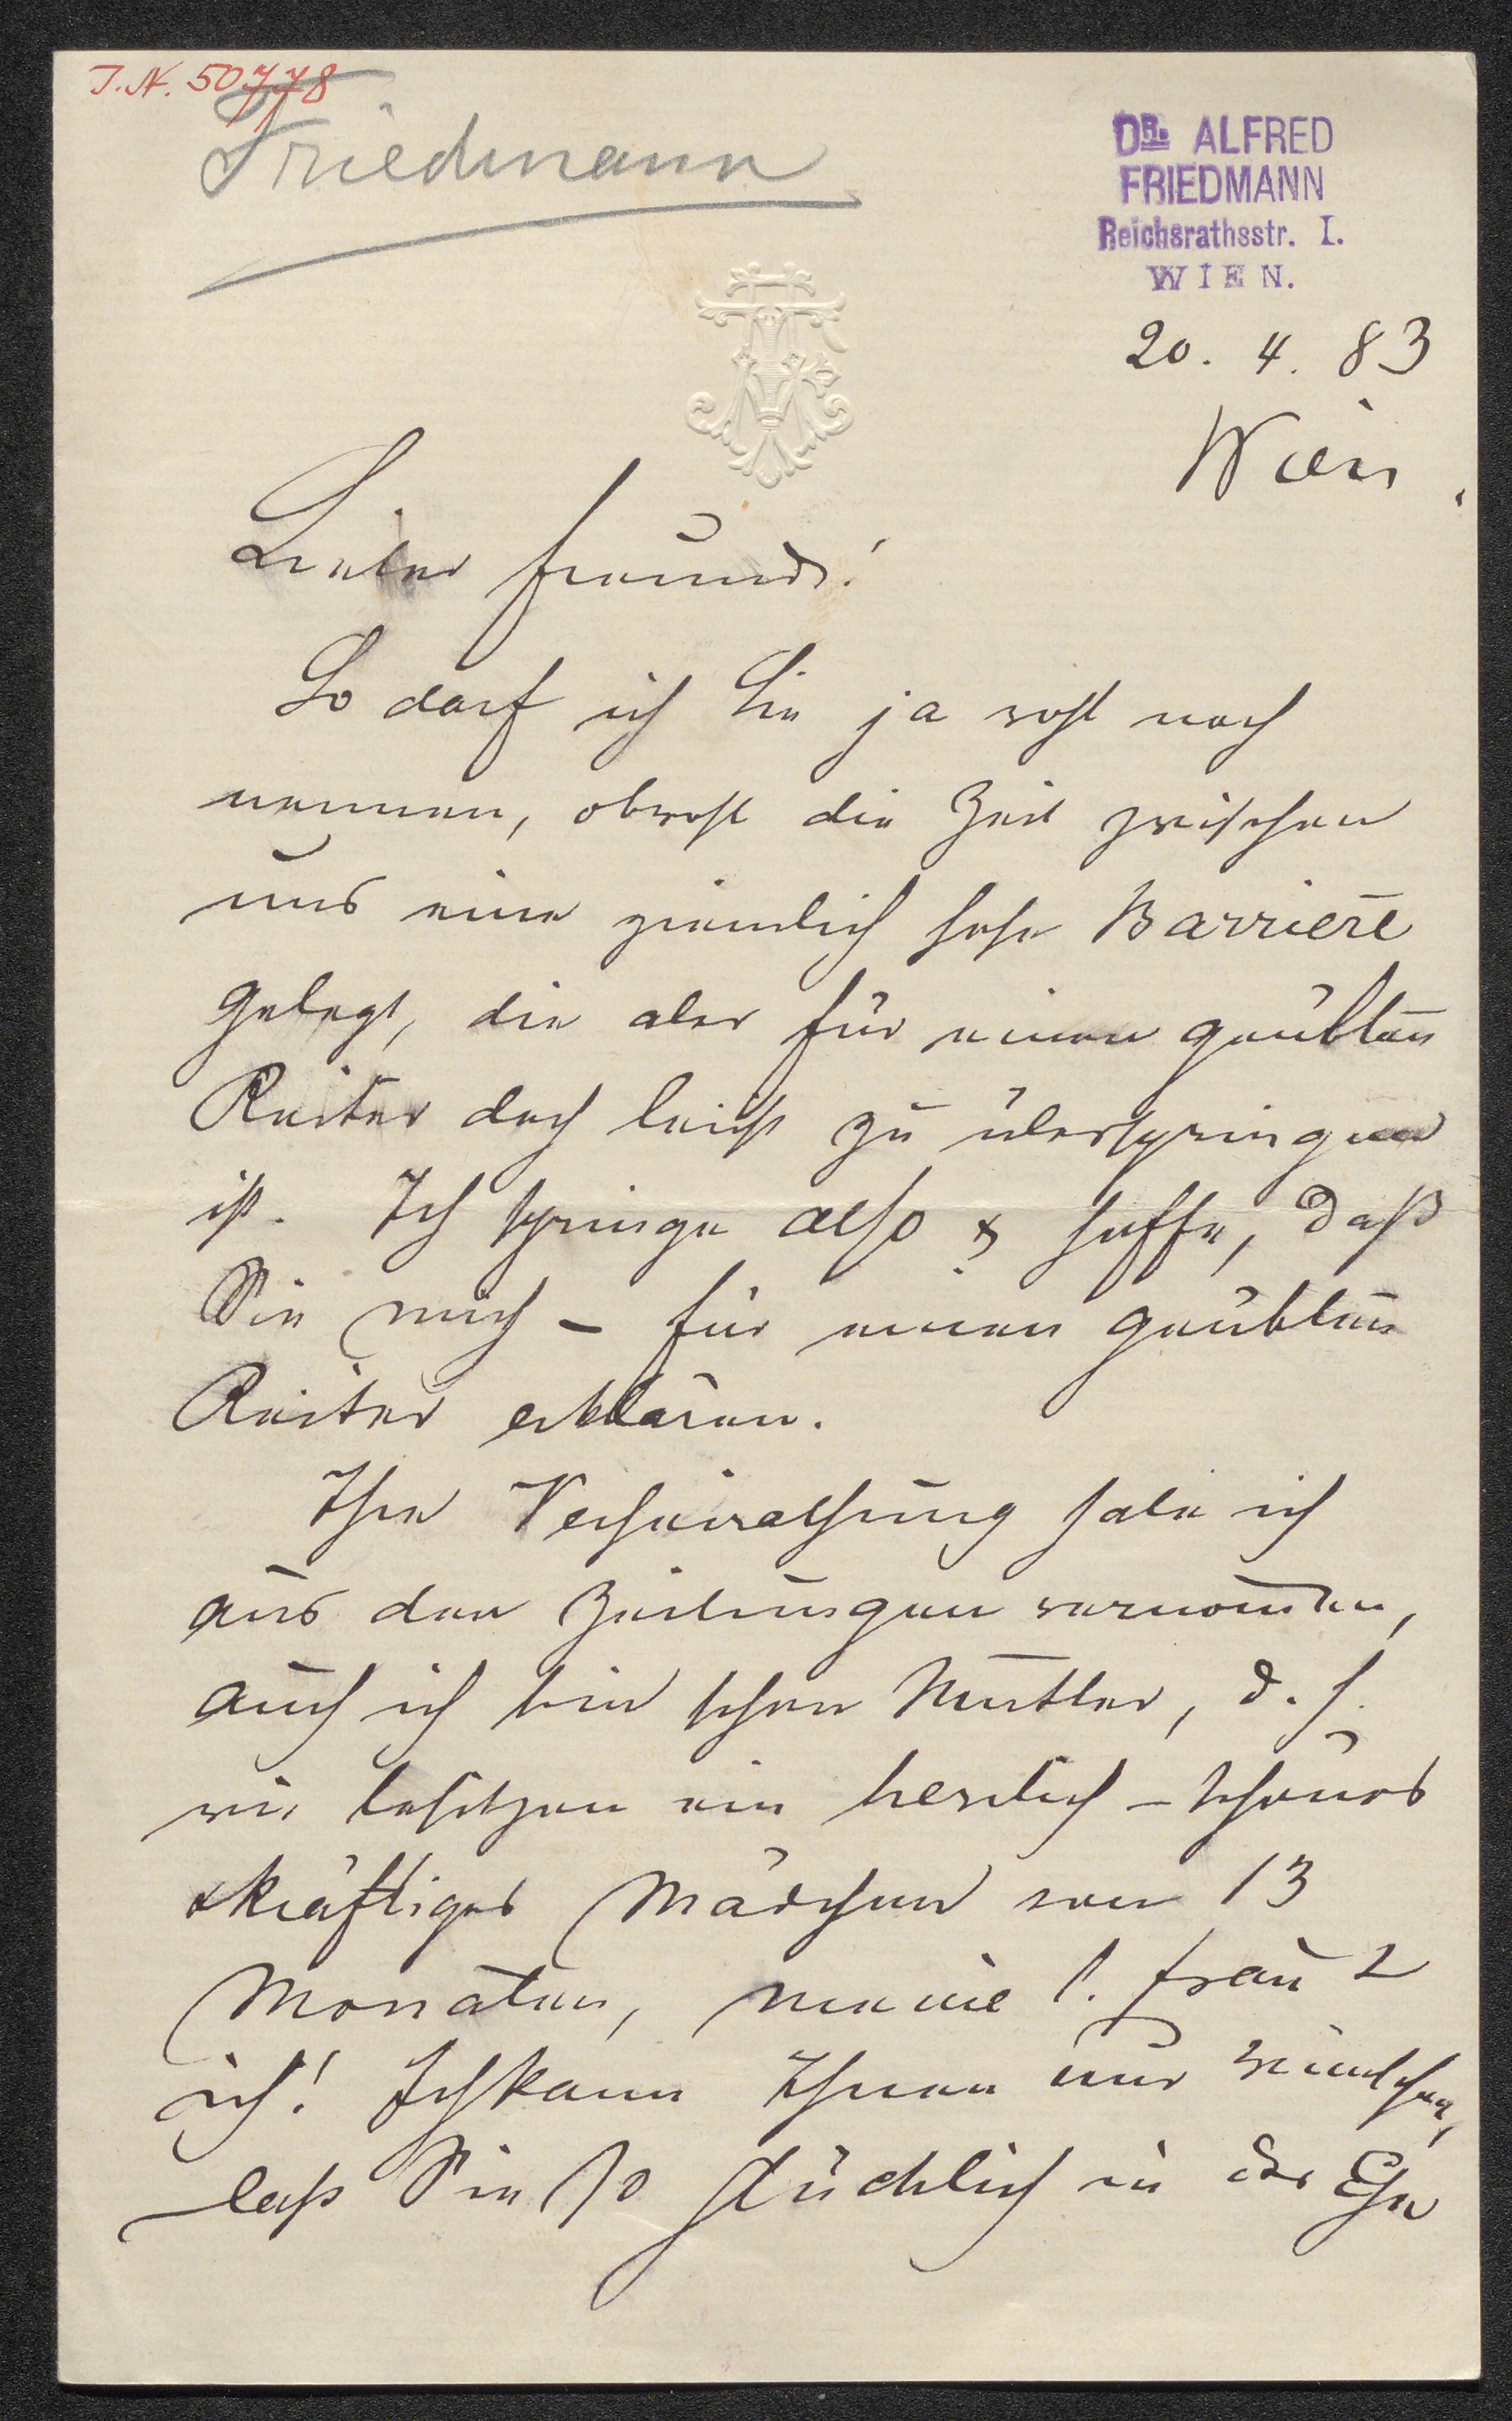 J.N. 50778
Friedmann
DR. ALFRED
FRIEDMANN
Reichsrathsstr. I.
WIEN.
20. 4. 83
Wien.
Lieber Freund!
So darf ich Sie ja wohl noch
nennen, obwohl die Zeit zwischen
uns eine ziemlich hohe Barrière
gelegt, die aber für einen geübten
Reiter doch leicht zu überspringen
ist. Ich springe also & hoffe, daß
Sie mich – für einen geübten
Reiter erklären.
Ihre Verheirathung habe ich
aus den Zeitungen vernom̄en,
auch ich bin schon Mutter, d. h.
wir besitzen ein herrlich-schönes
& kräftiges Mädchen von 13
Monaten, meine l. Frau &
ich! Ich kann Ihnen nur wünschen,
daß Sie so glücklich in der Ehe